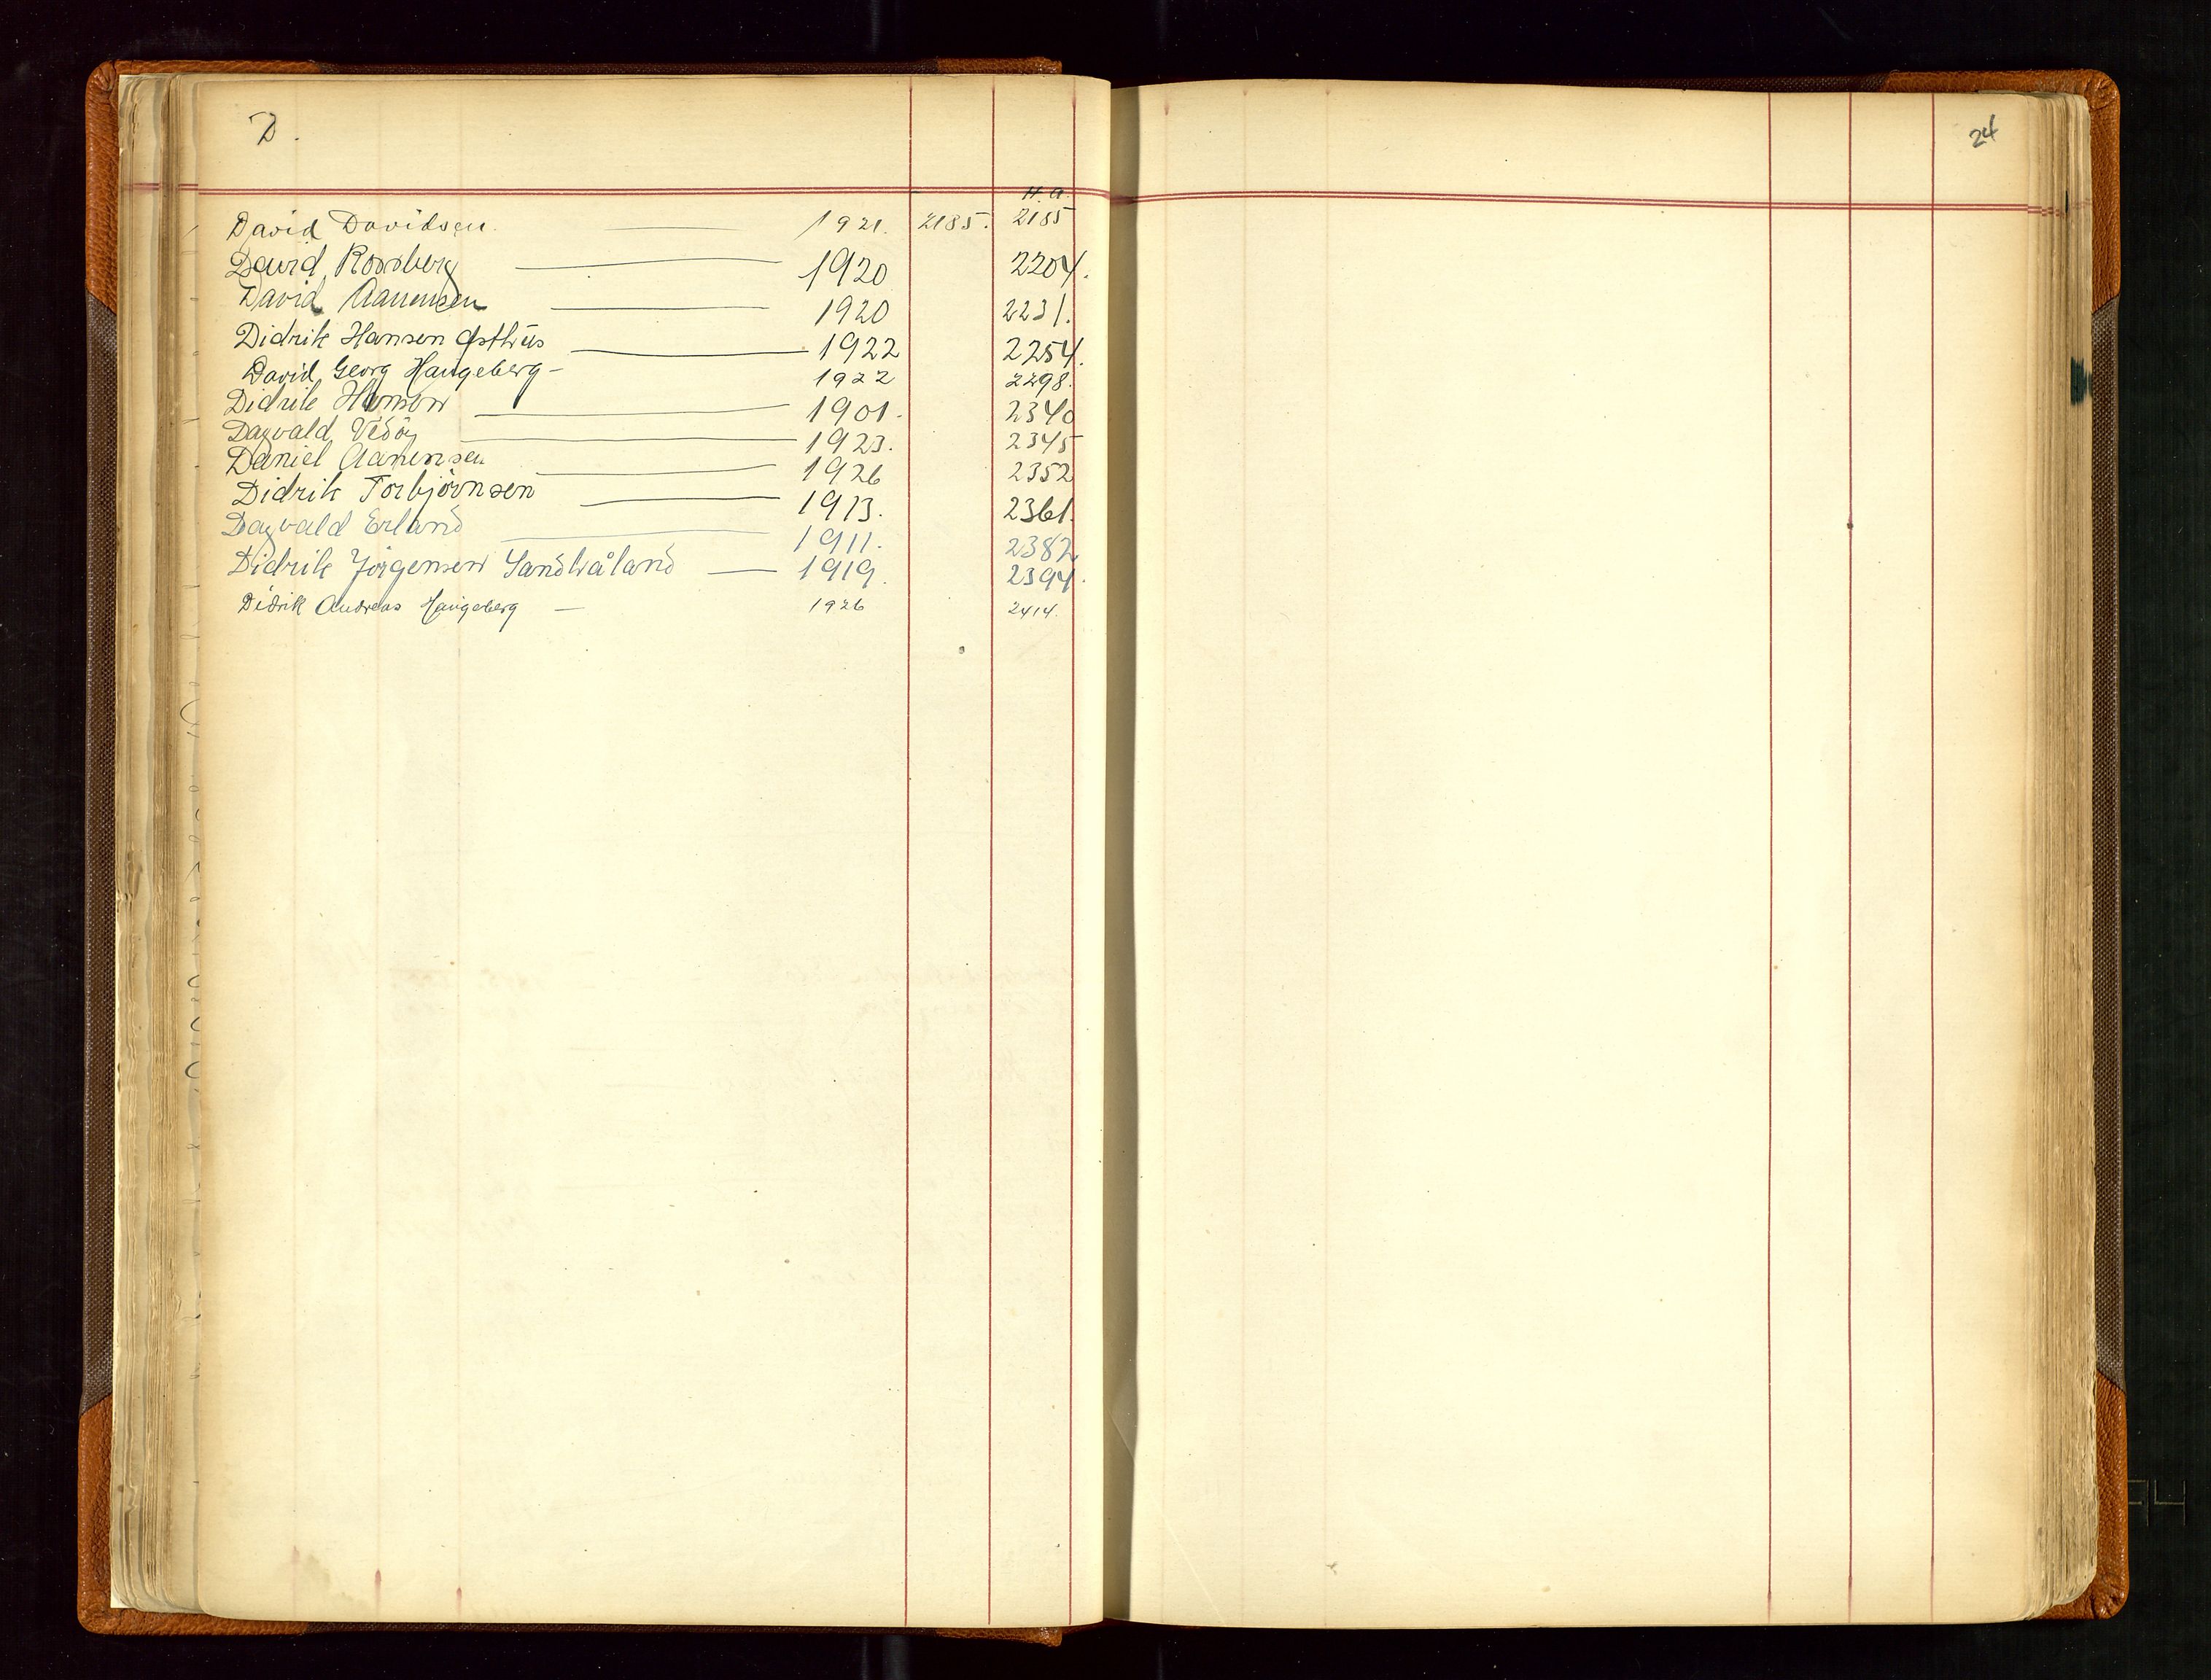 D.
24
H. A.
David Davidsen. 1921. 2185. 2185
David Rossberg 1920 2204.
David Aanensen 1920 2231.
Didrik Hansen Østhüs 1922 2254.
David Georg Haugeberg - 1922 2298.
Didrik Hansen 1901. 2340
Dagvald Vedöy 1923. 2345
Daniel Aanensen 1926 2352
Didrik Torbjörnsen 1913. 2361.
Dagvald Erland 1911. 2382
Didrik Jörgensen Sandhåland 1919. 2394.
Didrik Andreas Haugeberg - 1926 2414.